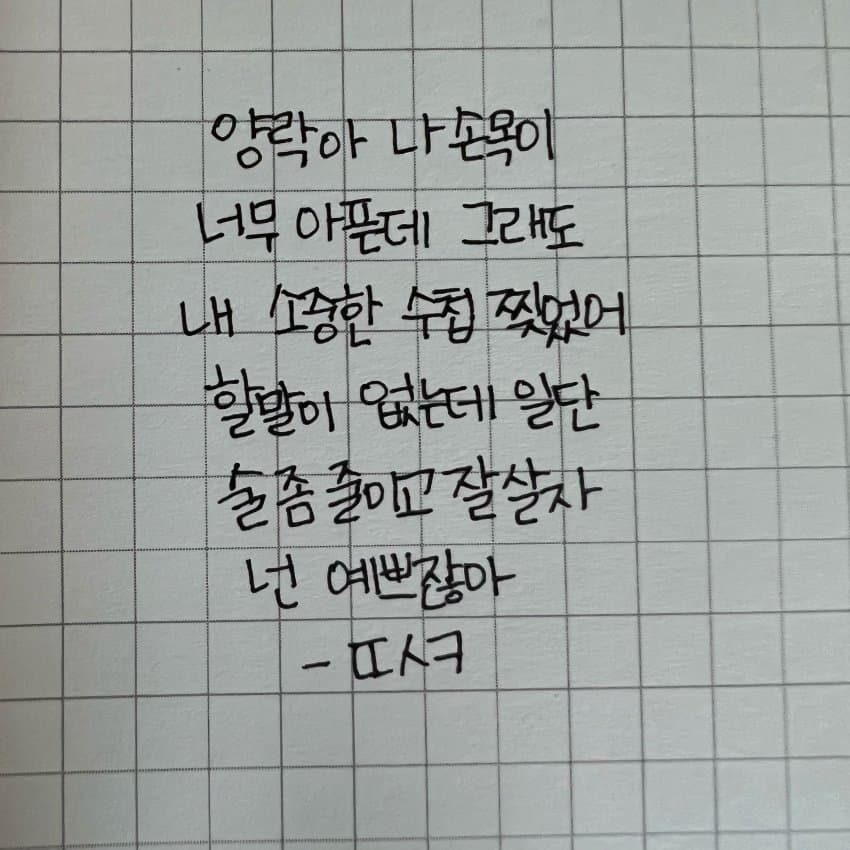 양락아 나 손목이
너무 아픈데 그래도
내 소중한 수첩 찢었어
할말이 없는데 일단
술 좀 줄이고 잘 살자
넌 예쁘잖아
- ㄸㅅㅋ